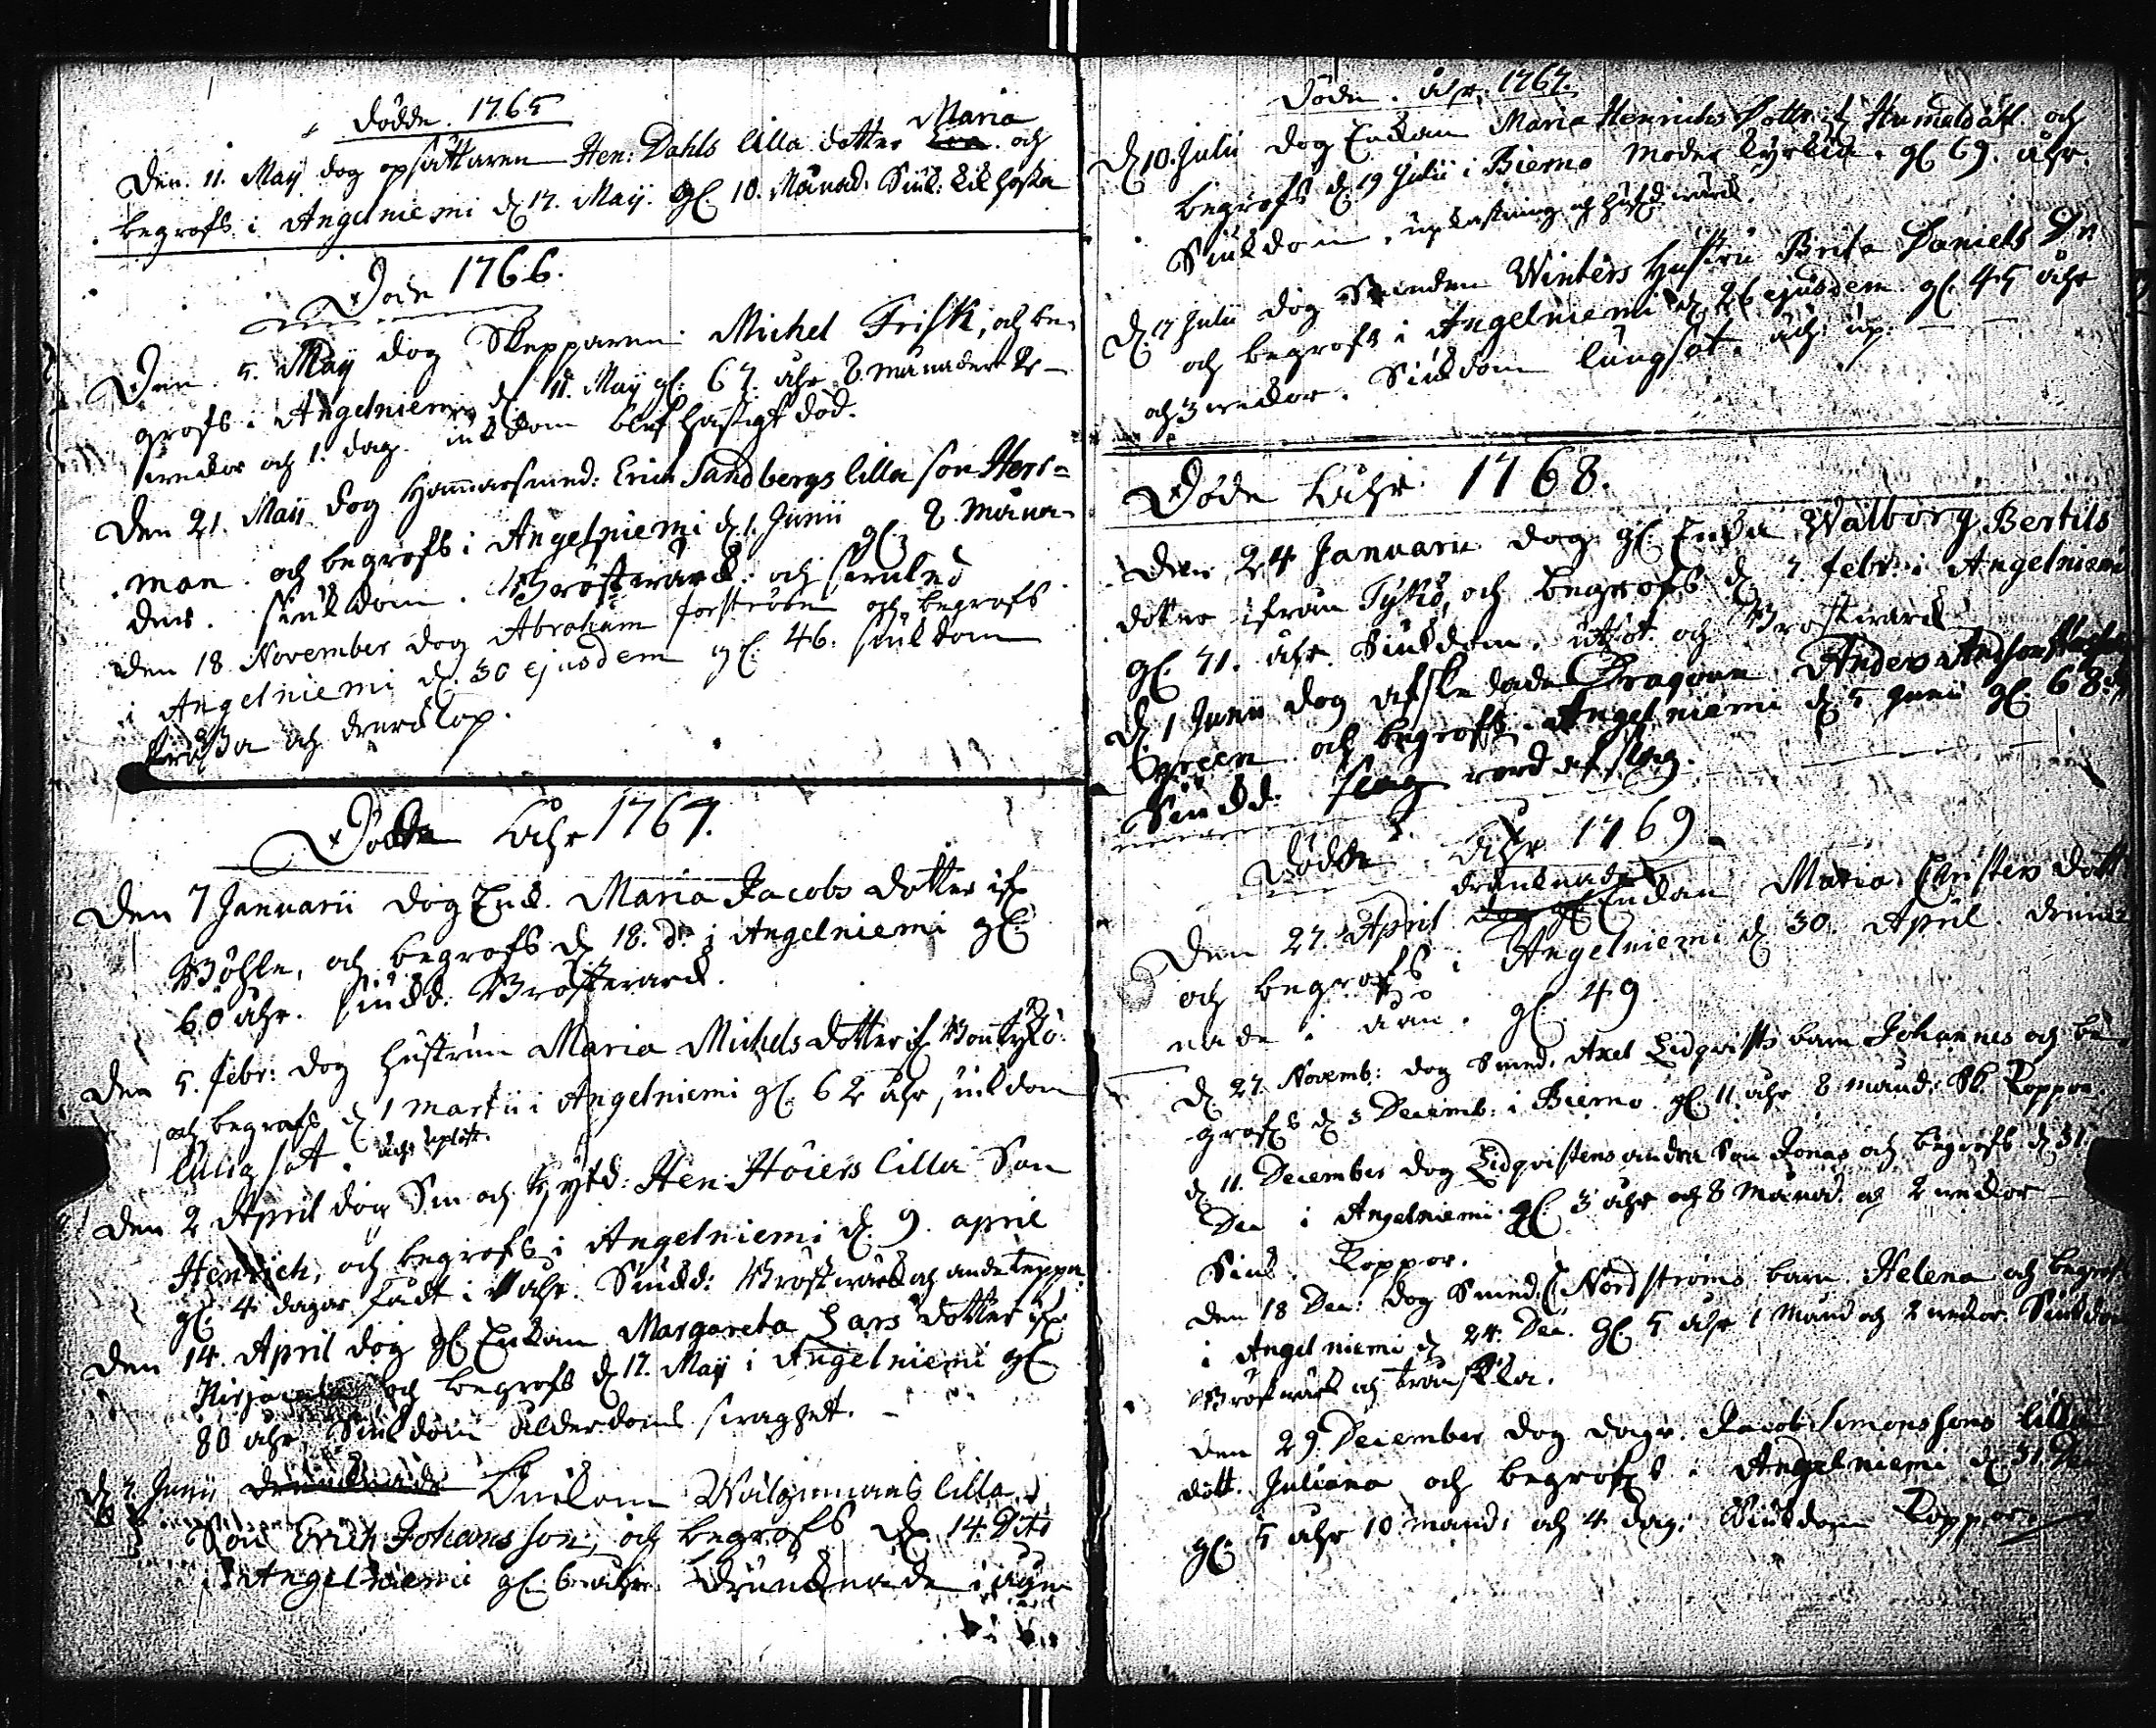 Dödde. 1765
Den. 11. Maij dog opsättaren Hen: Dahls lilla dotter Maria och
begrofs i Angelniemi d. 17. Maij. gl. 10. Månad. Siuk: kikhosta
Döde 1766.
Den 5. Maij dog Skepparen Michel Frisk, och be-
grofs i Angelniemi d. 11. Maij gl: 67. åhr 8 månader
weckor och 1. dag. siukdom blef hastigt död.
Den 21. Maij dog Hammarsmed: Erich Sandbergs lilla son Her-
man och begrofs i Angelniemi d. 1. Junii gl. 2 måna-
der. siukdom. Bröstwärck och
Den 18 November dog Abraham forström och begrofs
i Angelniemi d. 30 ejusdem gl. 46. siukdom
och
Dödde Åhr 1767.
Den 7 Januarii dog Enk. Maria Jacobs dotter if
Böhle, och begrofs d 18. do i Angelniemi gl.
60 åhr. siukd. Bröstwärck.
Den 5. febr: dog hustrun Maria Michels dotter if
och begrofs d 1 Martii i Angelniemi gl. 62 åhr siukdom
lungsot. åhs uplöst.
Den 2 April dog Hen: Höiers lilla Son
Henrich, och begrofs i Angelniemi d. 9. april
gl. 4 dagar födt i åhr. Siukd: Bröstwärck och andeteppa.
Den 14. April dog gl. Enkan Margareta Lars dotter if
och begrofs d 17. Maij i Angelniemi gl
80 åhr Siukdom ålderdoms swaghet.
d 7 Junii drunknade Enkan lilla
Son Erich Johansson, och begrofs d. 14 Dito
i Angelniemi gl. 6 åhr. Drunknade i
Döde. åhr. 1767.
d 10. Julii dog Enkan Maria Henrichs Dotter if och
begrofs d 19 Julii i Bierno Moder kyrkia. gl 69. åhr.
Siukdom, upkastning och hufwudwärck.
d. 17 Julii dog Winters Hustru Brita Daniels Dr
och begrofs i Angelniemi d. 26 ejusdem gl. 45 åhr
och 3 weckor. Siukdom lungsot. åhs up.
Döde Åhr 1768.
Den 24 Januarii dog gl. Enka Walborg Bertils
dotter ifrån Tykö, och begrofs d 7 febr: i Angelniemi
gl. 71. åhr. Siukdom. och Bröstwärck
d 1 Junii dog afskedade Dragoun Anders Andsson
Green och begrofs i Angelniemi d 5 Junii gl. 68
Siukd: slag
Dödde Åhr 1769.
drunknade
Den 27. April dog gl Enkan Maria Christers dott
och begrofs i Angelniemi d 30. April. drunk
nade i åen. gl. 49
d 27. Novemb: dog Smed. Axel Lidqvists barn Johannes och be-
grofs d 3 Decemb: i Bierno gl. 11 åhr 8 månd: Sk. Koppor.
d 11. December dog Lidqvistens andra Son Jonas och begrofs d 31.
Dec i Angelniemi gl. 3 åhr och 8 Månad. och 2 weckor
Siuk. Koppor.
Den 18 Dec: dog Smed: Nordströms barn Helena och begrof
i Angelniemi d 24. Dec. gl. 5 åhr 1 Månd och 2 weckor. Siukdom
Bröstwärk och tranSiuka.
Den 29. December dog Jacob Simonssons lilla
dott. Juliana och begrofs i Angelniemi d 31 Dec
gl. 5 åhr 10 månd: och 4 dag: Siukdom Koppor